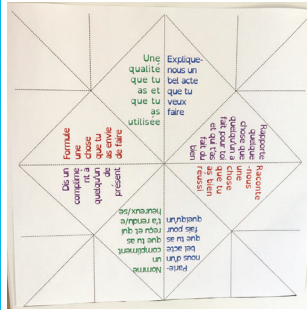 Une
qualité
que tu
as et
que tu
as
utilisée
Explique-
nous un
bel acte
que tu
veux
faire
Rapporte
quelque
chose que
quelqu'un a
fait pour toi
et qui t'as
fait du
bien
Raconte
-nous
une
chose
que tu
as bien
réussi
Parle-
nous d'un
bel acte
que tu as
fais pour
quelqu'un
Nomme
un
compliment
que tu as
reçu et qui
t'a rendu/e
heureux/se
Dis un
complime
nt à
quelqu'un
de
présent
Formule
une
chose
que tu
as envie
de faire